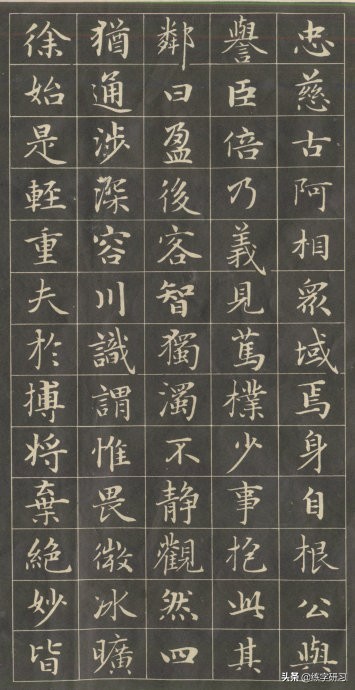 忠慈古阿相眾域焉身自根公與
譽臣倍乃義見篤樸少事抱此其
鄰曰盈後客智獨濁不静觀然四
猶通涉深容川識謂惟畏微冰曠
徐始是輕重夫於搏将棄絕妙皆
头条@练字研习